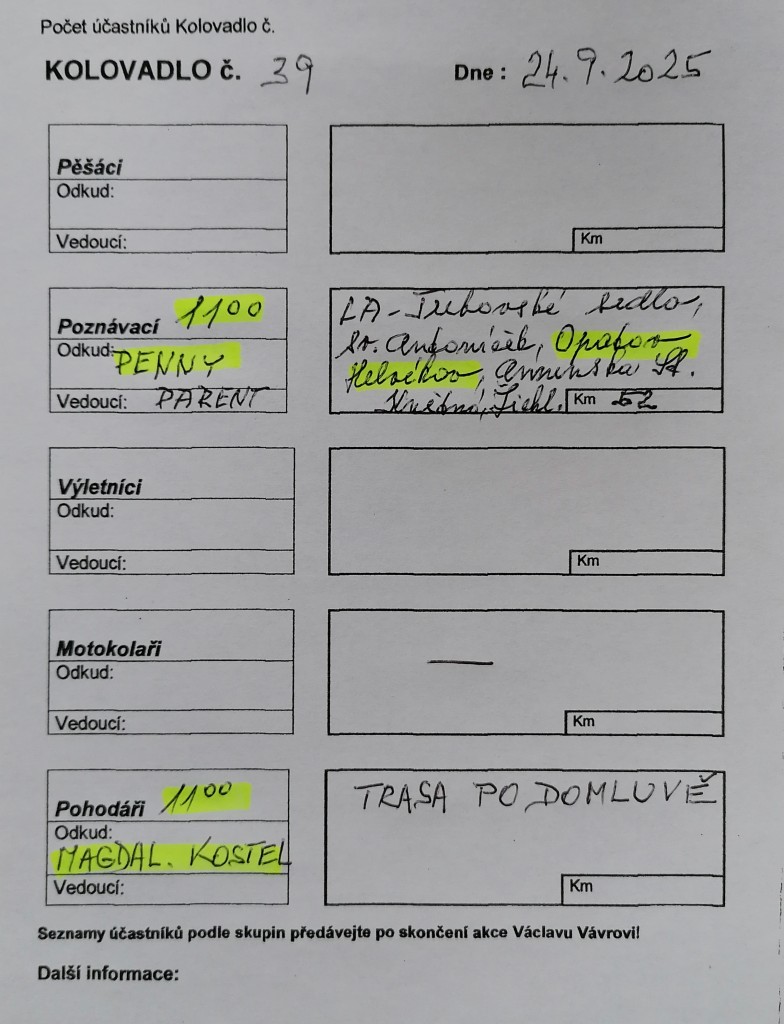 Počet účastníků Kolovadlo č.
KOLOVADLO č. 39 Dne : 24.9.2025
Pěšáci
Odkud:
Vedoucí:
Km
Poznávací 11 00
Odkud: PENNY
Vedoucí: PARENT
LA-Trebovské sedlo,
Sv. Antoníček, Opatov
Helvíkov, Anenská St.
Km 52
Výletníci
Odkud:
Vedoucí:
Km
Motokolaři
Odkud:
Vedoucí:
—
Km
Pohodáři 11 00
Odkud:
MAGDAL. KOSTEL
Vedoucí:
TRASA PO DOMLUVĚ
Km
Seznamy účastníků podle skupin předávejte po skončení akce Václavu Vávrovi!
Další informace: